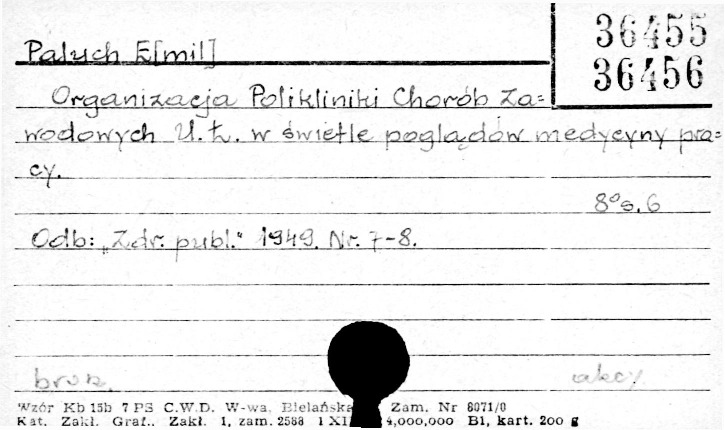 36455
36456
Paluch E[mil]
Organizacja Polikliniki Chorób Za=
wodowych U.Ł. w świetle poglądów medycyny pra=
cy.
8° s. 6
Odb: „Zdr. publ." 1949. Nr. 7-8.
brosz. akcy
Wzór Kb 15b 7 PS C.W.D. W-wa, Bielańska Zam. Nr 8071/0
Kat. Zakł. Graf., Zakł. 1, zam. 2588 1 XI 4,000,000 B1, kart. 200 g